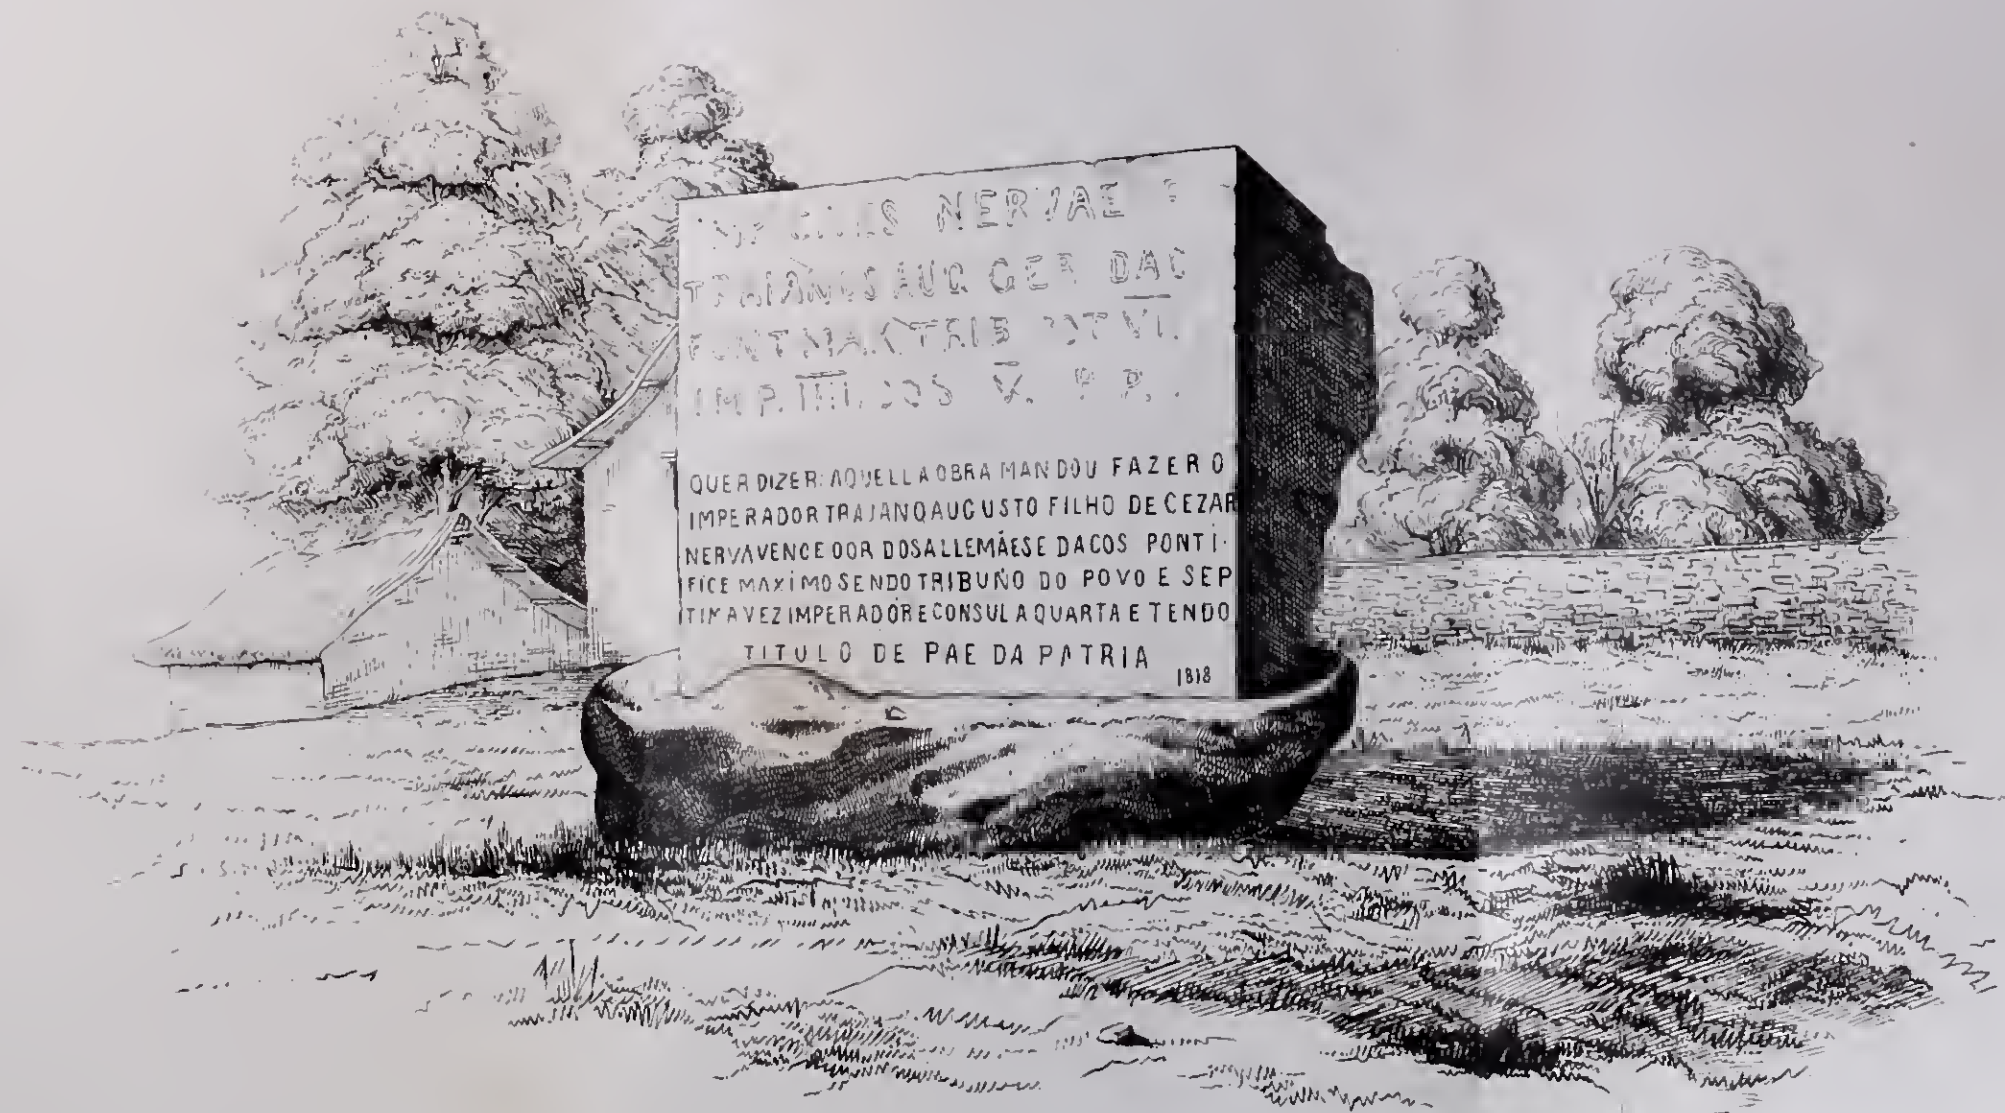 NERVAE
TRAIANUS AUG GER DAC
PONT MAX TRIB POT VI.
IMP. IIII. COS V. P P.
QUER DIZER: AQUELLA OBRA MANDOU FAZER O
IMPERADOR TRAJANO AUGUSTO FILHO DE CEZAR
NERVA VENCEDOR DOS ALLEMÃES E DACOS PONTI-
FICE MAXIMO SENDO TRIBUNO DO POVO E SEP
TIMA VEZ IMPERADOR E CONSUL A QUARTA E TENDO
TITULO DE PAE DA PATRIA
1818